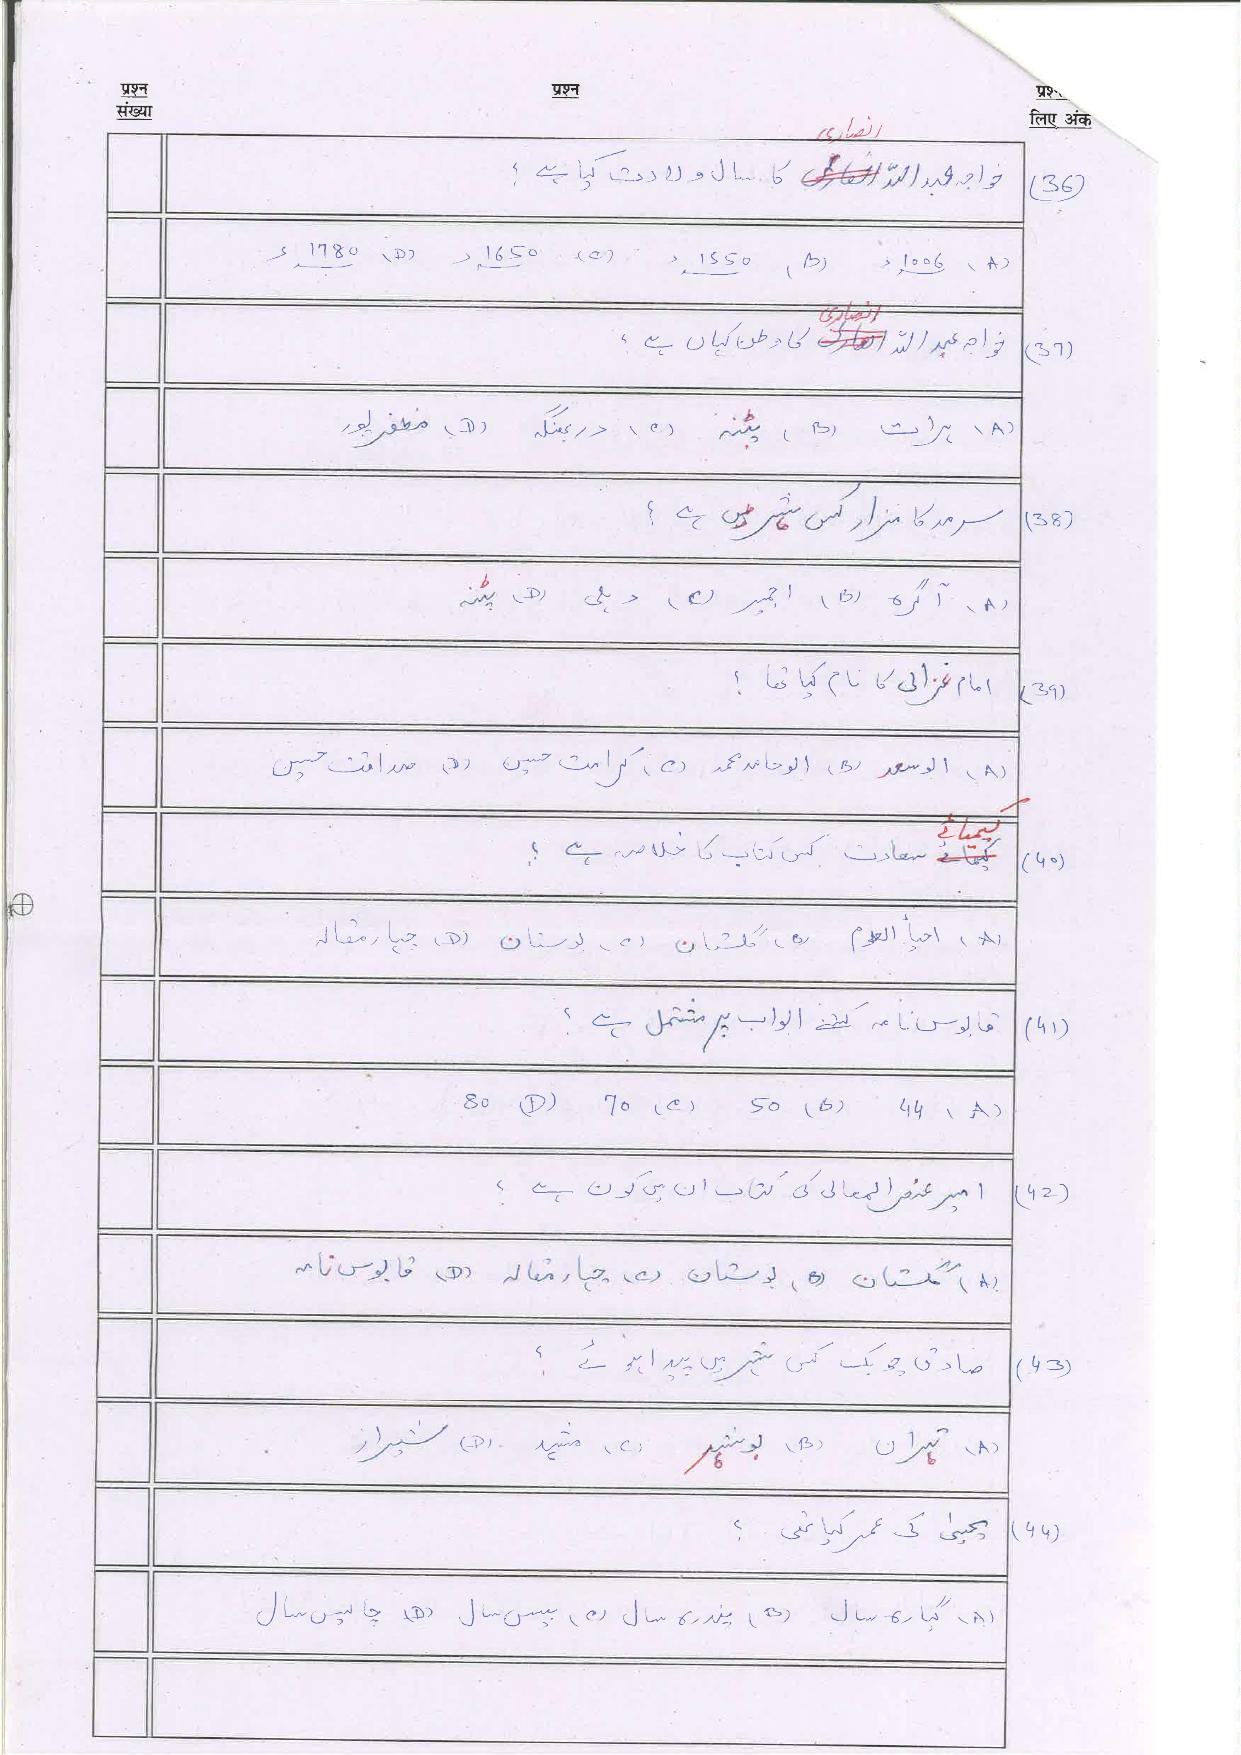 प्रश्न संख्या
प्रश्न
प्रश्
लिए अंक
(36) خواجہ عبداللہ انصاری کا سال ولادت کیا ہے ؟
(A) 1006ء (B) 1550ء (C) 1650ء (D) 1780ء
(37) خواجہ عبداللہ انصاری کا وطن کہاں ہے ؟
(A) ہرات (B) پٹنہ (C) دربھنگہ (D) مظفرپور
(38) سرمد کا مزار کس شہر میں ہے ؟
(A) آگرہ (B) اجمیر (C) دہلی (D) پٹنہ
(39) امام غزالی کا نام کیا تھا ؟
(A) ابوسعد (B) ابوحامد محمد (C) کرامت حسین (D) صداقت حسین
(40) کیمیائے سعادت کس کتاب کا خلاصہ ہے ؟
(A) احیأ العلوم (B) گلستان (C) بوستان (D) چہار مقالہ
(41) قابوس نامہ کتنے ابواب پر مشتمل ہے ؟
(A) 44 (B) 50 (C) 70 (D) 80
(42) امیر عنصر المعالی کی کتاب ان میں کون ہے ؟
(A) گلستان (B) بوستان (C) چہار مقالہ (D) قابوس نامہ
(43) صادق چوبک کس شہر میں پیدا ہوئے ؟
(A) تہران (B) بوشہر (C) مشہد (D) شیراز
(44) یحییٰ کی عمر کیا تھی ؟
(A) گیارہ سال (B) پندرہ سال (C) بیس سال (D) چالیس سال